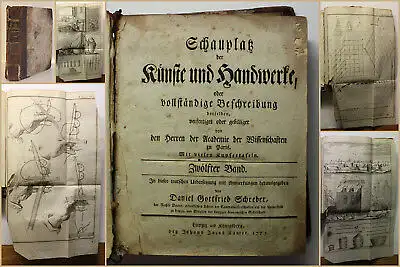 Schauplatz
der
Künste und Handwerke,
oder
vollständige Beschreibung
derselben,
verfertiget oder gebilliget
von
den Herren der Academie der Wissenschaften
zu Paris.
Mit vielen Kupfertafeln.
Zwölfter Band.
In dieser teutschen Uebersetzung mit Anmerkungen herausgegeben
von
Daniel Gottfried Schreber,
Leipzig und Königsberg,
bey Johann Jacob Kanter.